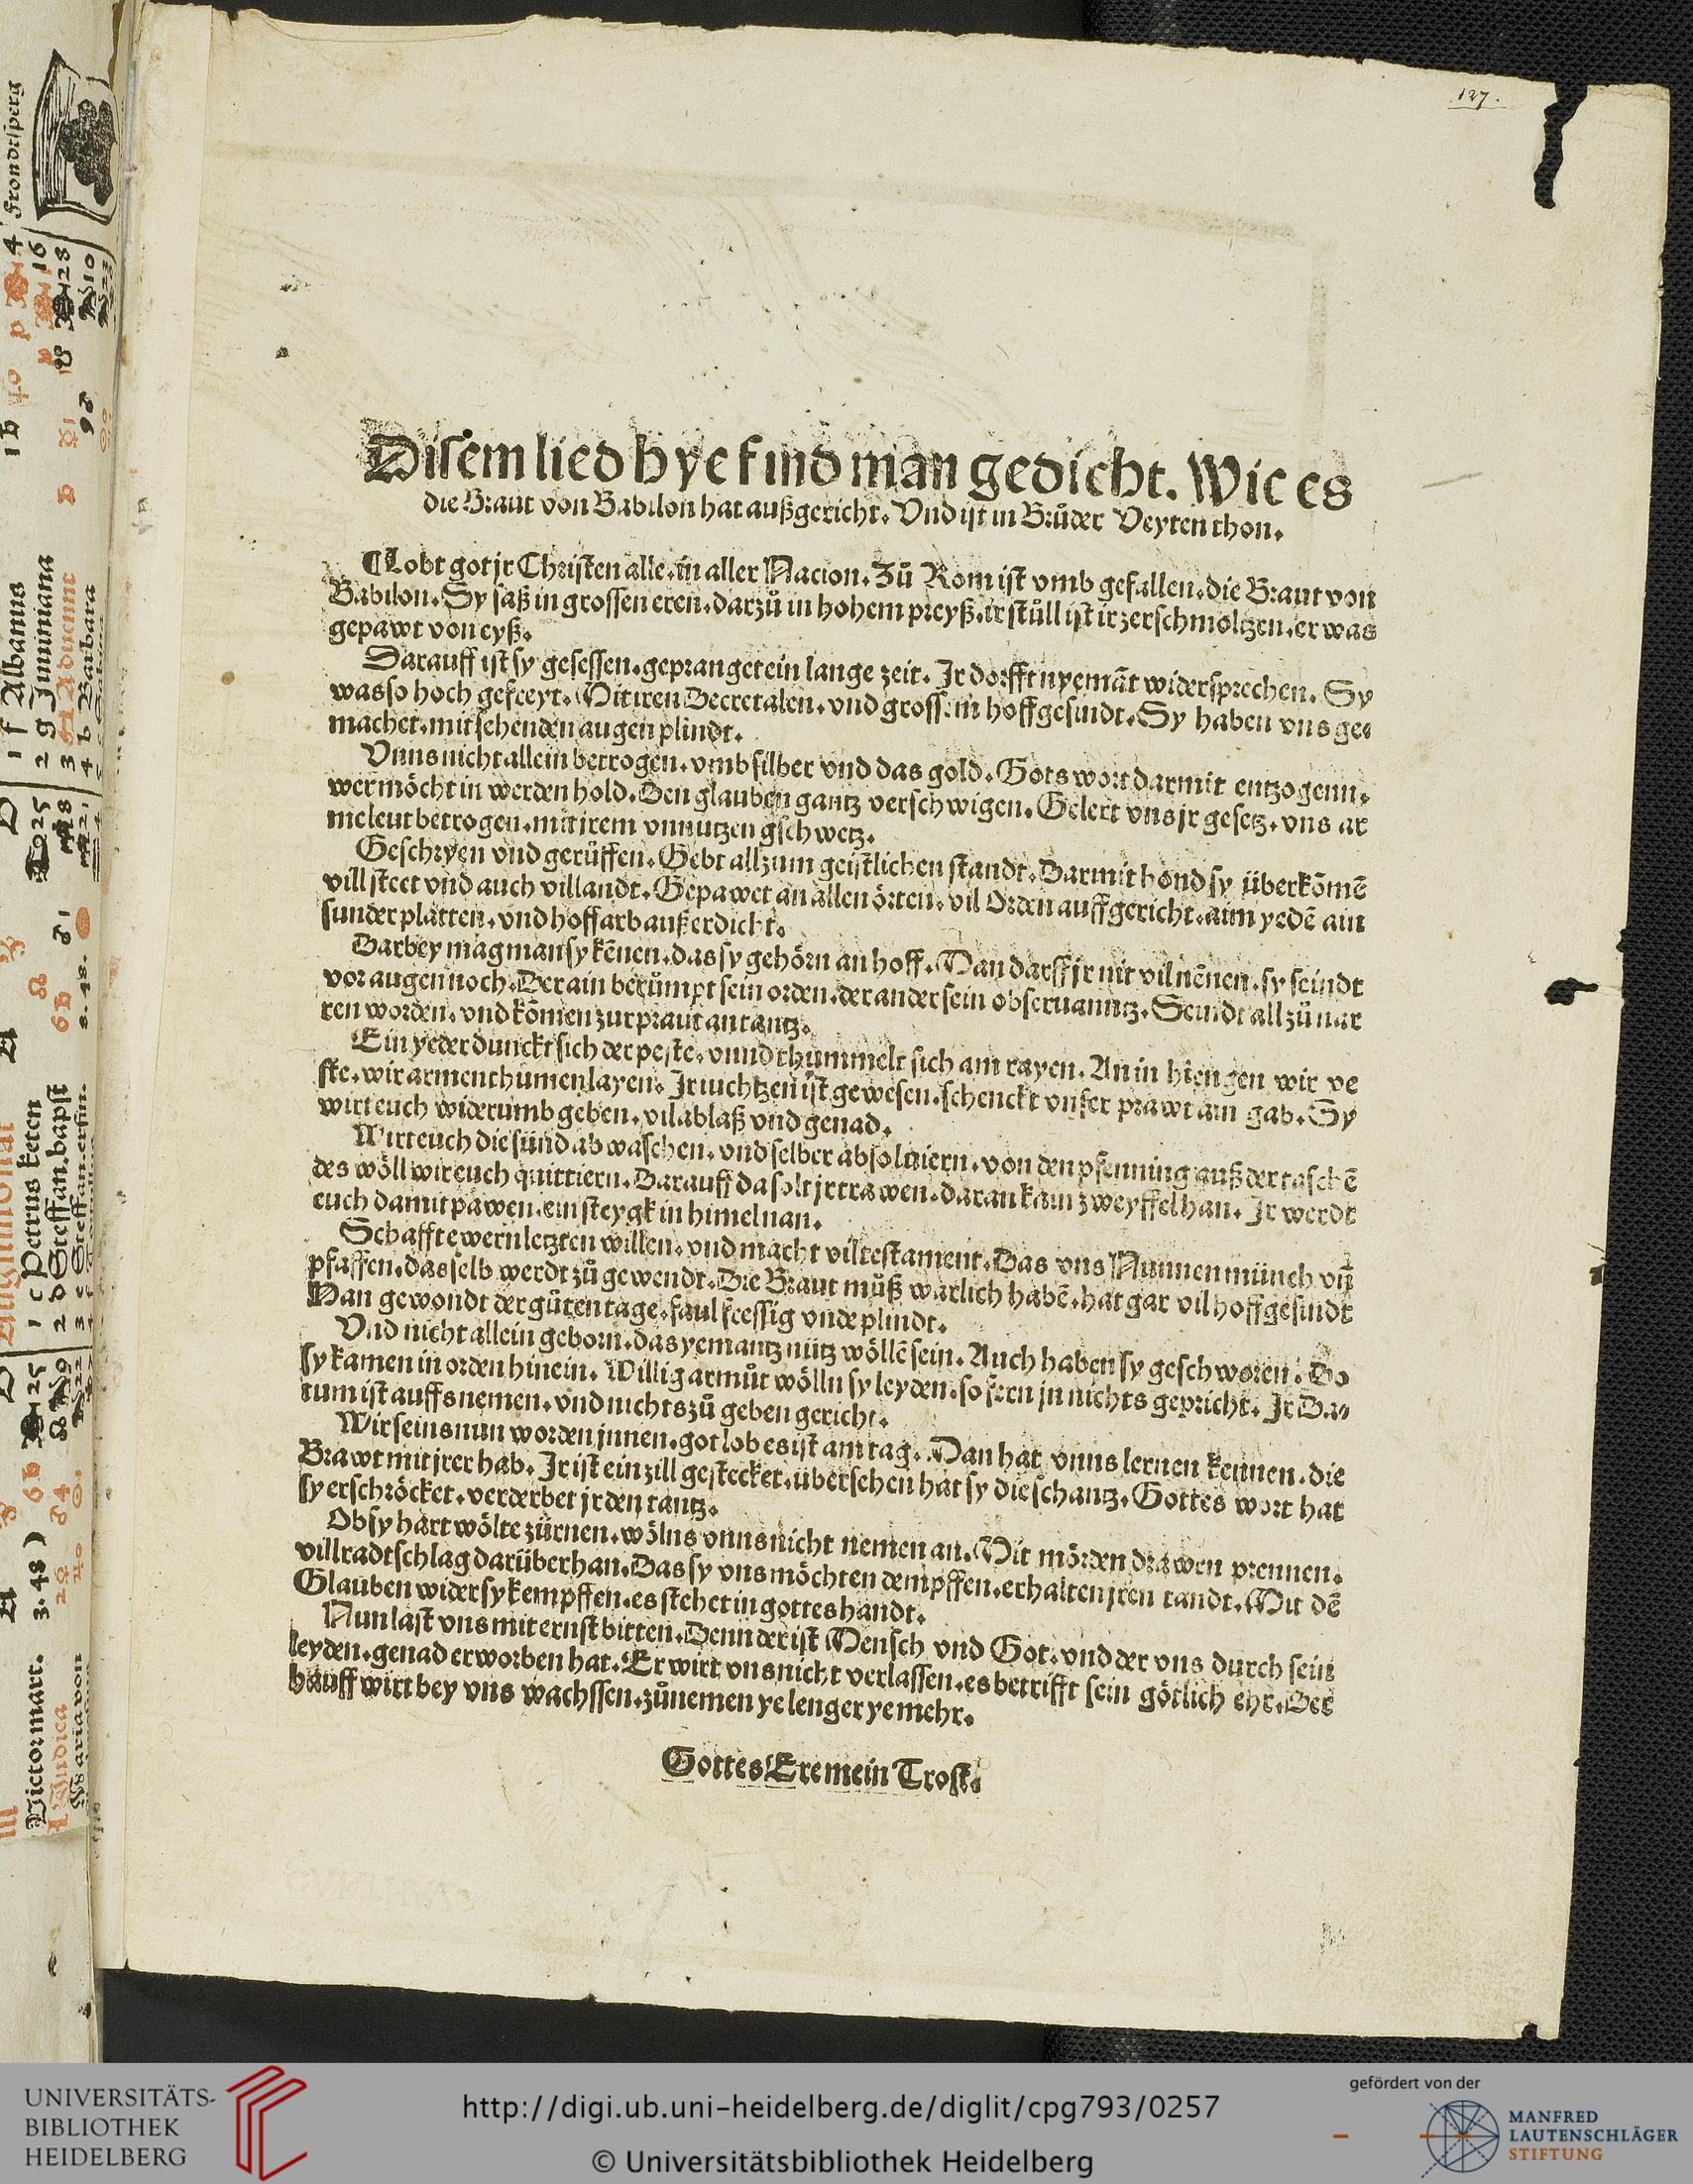 127.
Disem lied hye find man gedicht. Wie es
die Braut von Babilon hat außgericht. Vnd ist in Brůder Veyten thon.
¶Lobt got jr Christen alle. in aller Nacion. Zů Rom ist vmb gefallen. die Braut von
Babilon. Sy saß in grossen eren. darzů in hohem preyß. ir stůll ist ir zerschmoltzen. er was
gepawt von eyß.
Darauff ist sy gesessen. gepranget ein lange zeit. Jr dorfft nyemãt widersprechen. Sy
was so hoch gefreyt. Mit iren Decretalen. vnd grossem hoffgesindt. Sy haben vns ge⸗
machet. mit sehenden augen plindt.
Vnns nicht allein betrogen. vmb silber vnd das gold. Gots wort darmit entzogenn.
wer möcht in werden hold. Den glauben gantz verschwigen. Gelert vns jr gesetz. vns ar
me leut betrogen. mit jrem vnnutzen gschwetz.
Geschryen vnd gerüffen. Gebt all zum geistlichen standt. Darmit hond sy überkõmẽ
vill steet vnd auch vil landt. Gepawet an allen örten. vil Orden auffgericht. aim yedẽ ain
sunder platten. vnd hoffarb auß erdicht.
Darbey mag man sy kẽnen. das sy gehörn an hoff. Man darff jr nit vil nẽnen. sy seindt
vor augen noch. Der ain berůmpt sein orden. der ander sein obseruanntz. Seindt all zů nar
ren worden. vnd kõmen zur praut an tantz.
Ein yeder dunckt sich der peste. vnnd thummelt sich am rayen. An in hiengen wir ve
ste. wir armen thumen layen. Jr iuchtzen ist gewesen. schenckt vnser prawt ain gab. Sy
wirt euch widerumb geben. vil ablaß vnd genad.
Wirt euch die sünd abwaschen. vnd selber absoluiern. von den pfenning auß der taschẽ
des wöll wir euch quittiern. Darauff da solt jr trawen. daran kain zweyffel han. Jr werdt
euch damit pawen. ein steygk in himel nan.
Schafft ewern letzten willen. vnd macht vil testament. Das vns Nunnen münch vñ
pfaffen. das selb werdt zů gewendt. Die Braut můß warlich habẽ. hat gar vil hoffgesindt
Man gewondt der gůten tage. faul fressig vnde plindt.
Vnd nicht allein geborn. das yemantz nütz wöllẽ sein. Auch haben sy geschworen. Do
sy kamen in orden hinein. Willig armůt wölln sy leyden. so fern jn nichts gepricht. Jr Da⸗
tum ist auffs nemen. vnd nichts zů geben gericht.
Wir seins nun worden jnnen. got lob es ist am tag. Man hat vnns lernen kennen. die
Brawt mit jrer hab. Jr ist ein zill gestecket. übersehen hat sy die schantz. Gottes wort hat
sy erschröcket. verderbet jr den tantz.
Ob sy hart wölte zürnen. wölns vnns nicht nemen an. Mit mörden drawen prennen.
vill radtschlag darüber han. Das sy vns möchten dempffen. erhalten jren tandt. Mit dẽ
Glauben wider sy kempffen. es stehet in gottes handt.
Nun last vns mit ernst bitten. Denn der ist Mensch vnd Got. vnd der vns durch sein
leyden. genad erworben hat. Er wirt vns nicht verlassen. es betrifft sein götlich ehr. Der
hauff wirt bey vns wachssen. zůnemen ye lenger ye mehr.
Gottes Ere mein Trost.
Frondtsperg
1 f Albanus
2 g Junniana
4 b Barbara
1 c Petrus keten
2 d Steffan. bapst
Victor mart.
Judica
UNIVERSITÄTS-
BIBLIOTHEK
HEIDELBERG
http://digi.ub.uni-heidelberg.de/diglit/cpg793/0257
© Universitätsbibliothek Heidelberg
gefördert von der
MANFRED
LAUTENSCHLÄGER
STIFTUNG